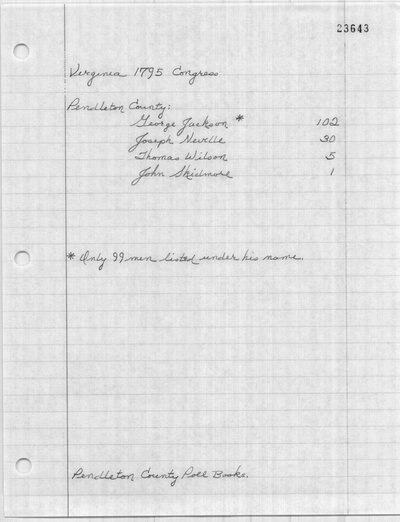 23643
Virginia 1795 Congress
Pendleton County:
George Jackson * 102
Joseph Neville 30
Thomas Wilson 5
John Skidmore 1
* Only 99 men listed under his name.
Pendleton County Poll Books.